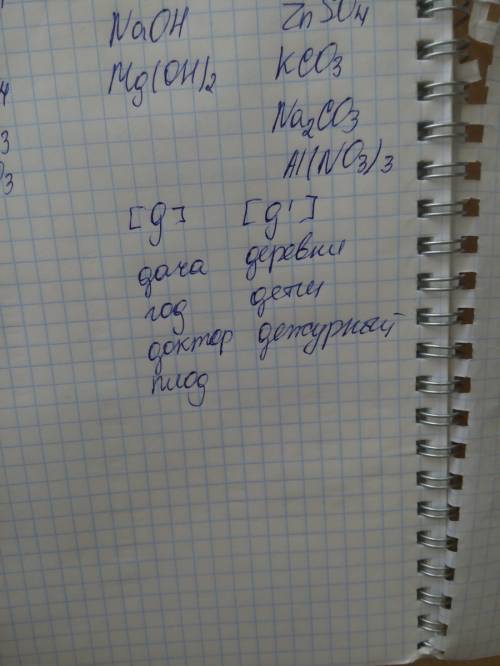 NaOH ZnSO4
Mg(OH)2 KCO3
4
Na2CO3
3
Al(NO3)3
O3
[д] [д']
дача деревни
год дети
доктор дежурный
плод